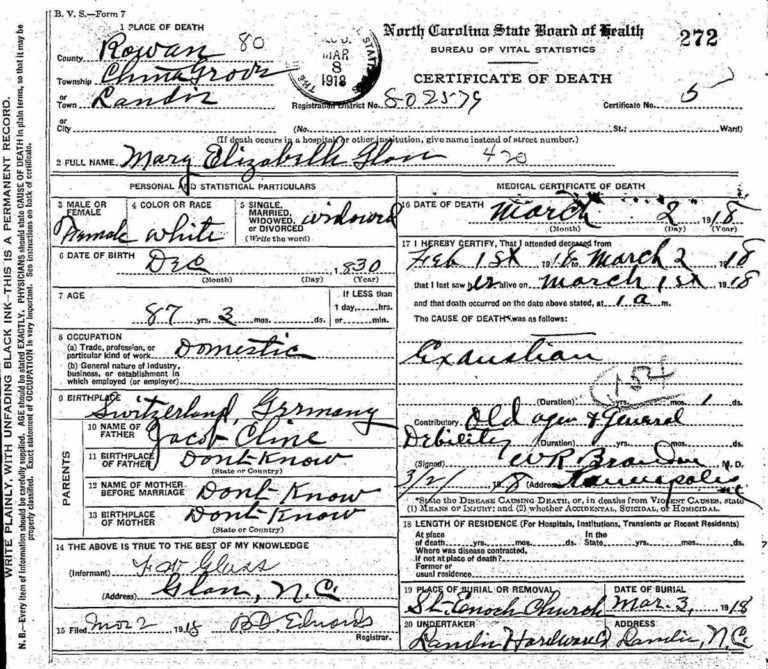 B. V. S.—Form 7
1 PLACE OF DEATH
County Rowan 80
Township China Grove
or
Town Landis
or
City
MAR
8
1918
North Carolina State Board of Health
BUREAU OF VITAL STATISTICS
272
CERTIFICATE OF DEATH
Registration District No. 80 2579 Certificate No. 5
(No. St.; Ward)
(If death occurs in a hospital or other institution, give name instead of street number.)
2 FULL NAME Mary Elizabeth 420
PERSONAL AND STATISTICAL PARTICULARS
3 MALE OR FEMALE Female
4 COLOR OR RACE white
5 SINGLE, MARRIED, WIDOWED, or DIVORCED (Write the word) widowed
6 DATE OF BIRTH Dec 1830
(Month) (Day) (Year)
7 AGE 87 yrs. 3 mos. ds.
If LESS than
1 day, hrs.
or min.
8 OCCUPATION
(a) Trade, profession, or
particular kind of work Domestic
(b) General nature of industry,
business, or establishment in
which employed (or employer)
9 BIRTHPLACE Switzerland, Germany
PARENTS
10 NAME OF FATHER Jacob Cline
11 BIRTHPLACE OF FATHER Dont Know
(State or Country)
12 NAME OF MOTHER BEFORE MARRIAGE Dont Know
13 BIRTHPLACE OF MOTHER Dont Know
(State or Country)
14 THE ABOVE IS TRUE TO THE BEST OF MY KNOWLEDGE
(Informant) Glass
(Address) N.C.
15 Filed Mar 2 1918 Edwards
Registrar.
MEDICAL CERTIFICATE OF DEATH
16 DATE OF DEATH March 2 1918
(Month) (Day) (Year)
17 I HEREBY CERTIFY, That I attended deceased from
Feb 1st 1918 to March 2 1918
that I last saw her alive on March 1st 1918
and that death occurred on the date above stated, at 1 a m.
The CAUSE OF DEATH* was as follows:
Exaustian
154
(Duration) yrs. mos. ds.
Contributory Old age & General
Debility (Duration) yrs. mos. ds.
(Signed) W R Brandon M. D.
3/2/ 1918 (Address) Kannapolis NC
*State the DISEASE CAUSING DEATH, or, in deaths from VIOLENT CAUSES, state
(1) MEANS OF INJURY; and (2) whether ACCIDENTAL, SUICIDAL, or HOMICIDAL.
18 LENGTH OF RESIDENCE (For Hospitals, Institutions, Transients or Recent Residents)
At place of death yrs. mos. ds. In the State yrs. mos. ds.
Where was disease contracted,
if not at place of death?
Former or
usual residence
19 PLACE OF BURIAL OR REMOVAL St. Enoch Church
DATE OF BURIAL Mar. 3, 1918
20 UNDERTAKER Landis Hardware
ADDRESS Landis, N.C.
WRITE PLAINLY, WITH UNFADING BLACK INK—THIS IS A PERMANENT RECORD.
N. B.—Every item of information should be carefully supplied. AGE should be stated EXACTLY. PHYSICIANS should state CAUSE OF DEATH in plain terms, so that it may be
properly classified. Exact statement of OCCUPATION is very important. See instructions on back of certificate.